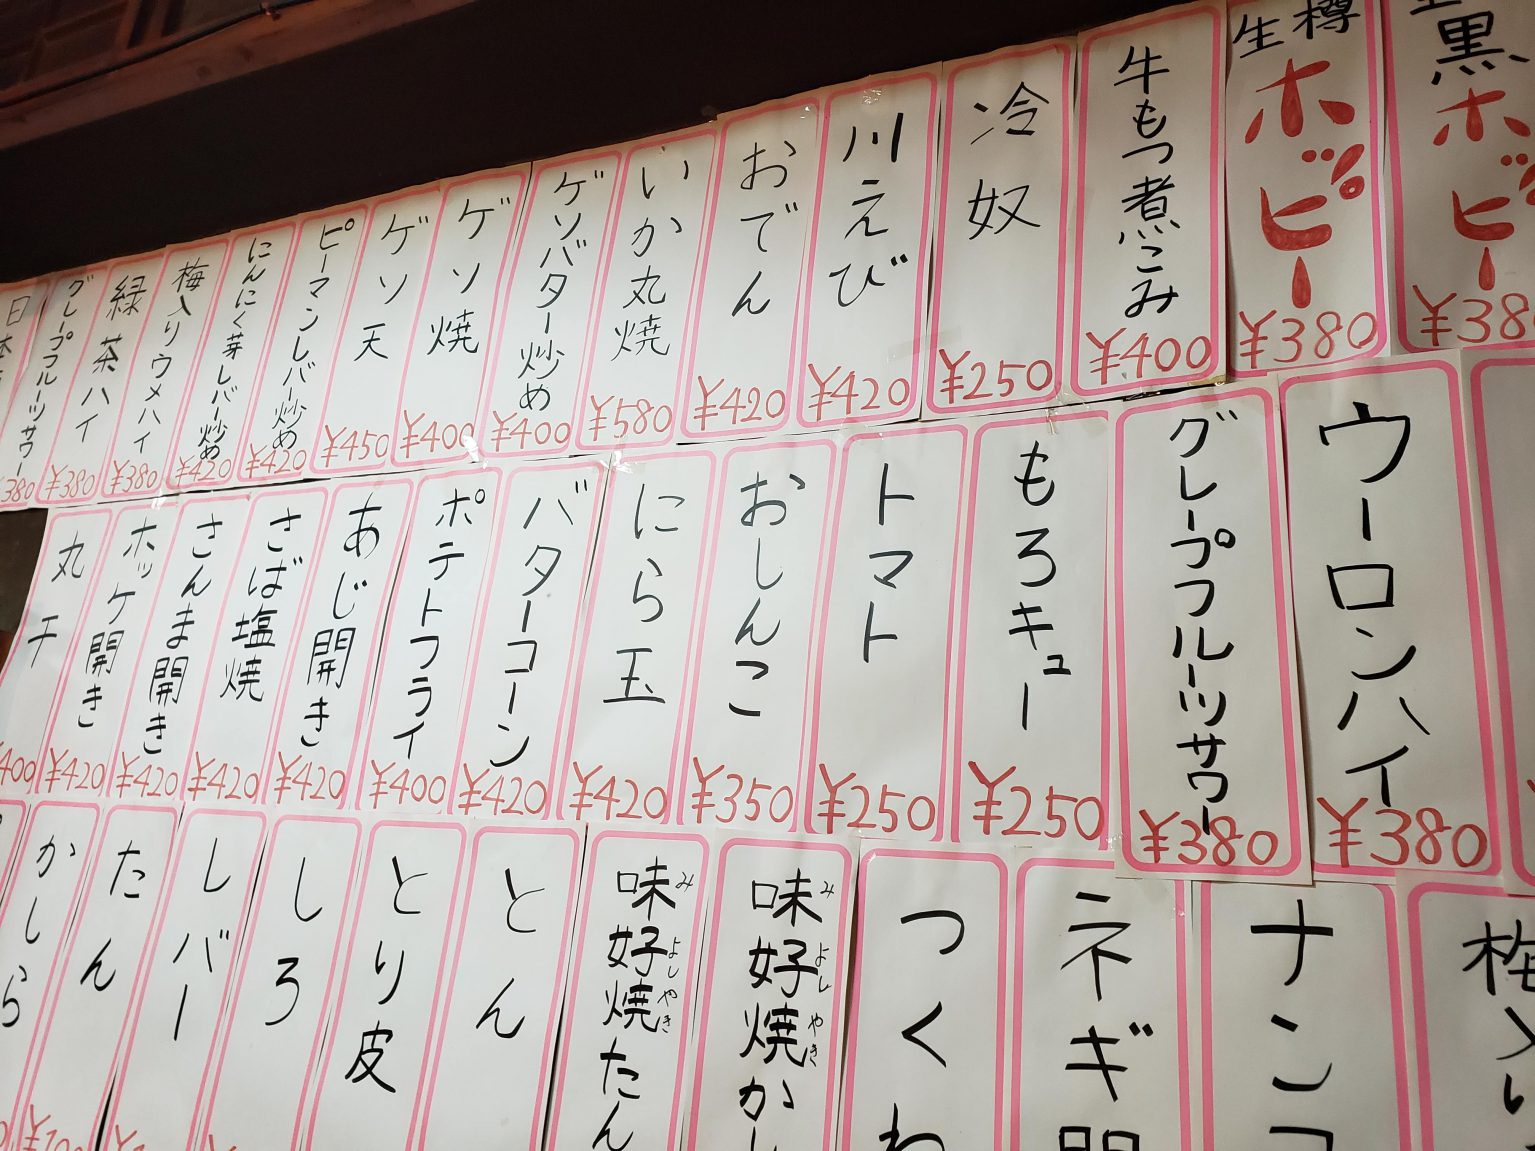 黒
ホビー
¥380
生樽
ホビー
¥380
牛もつ煮こみ
¥400
冷奴
¥250
川えび
¥420
おでん
¥420
いか丸焼
¥580
ゲソバター炒め
¥400
ゲソ焼
¥400
ゲソ天
¥450
ピーマンレバー炒め
¥420
にんにく芽レバー炒め
¥420
梅入りウメハイ
¥380
緑茶ハイ
¥380
グレープフルーツサワー
380
日
ウーロンハイ
¥380
グレープフルーツサワー
¥380
もろキュー
¥250
トマト
¥250
おしんこ
¥350
にら玉
¥420
バターコーン
¥420
ポテトフライ
¥400
あじ開き
¥420
さば塩焼
¥420
さんま開き
¥420
ホッケ開き
¥420
丸干
¥400
梅入り
ナンコ
ネギ間
つくね
味好焼かし
みよしやき
味好焼たん
みよしやき
とん
とり皮
しろ
レバー
たん
かしら
¥100